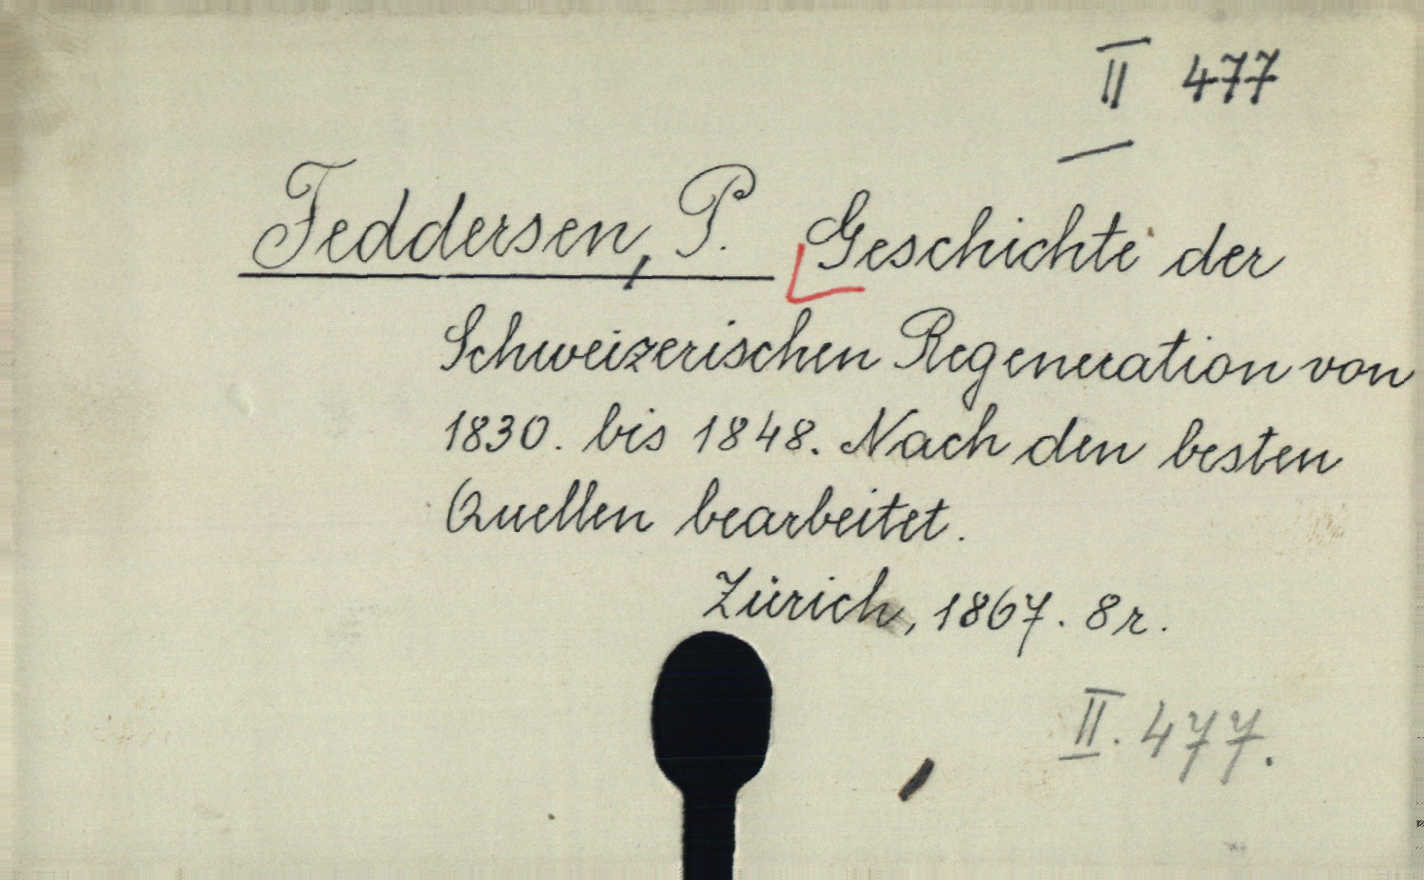 II 477
Feddersen, P. Geschichte der
Schweizerischen Regeneration von
1830. bis 1848. Nach den besten
Quellen bearbeitet.
Zürich, 1867. 8r.
II. 477.